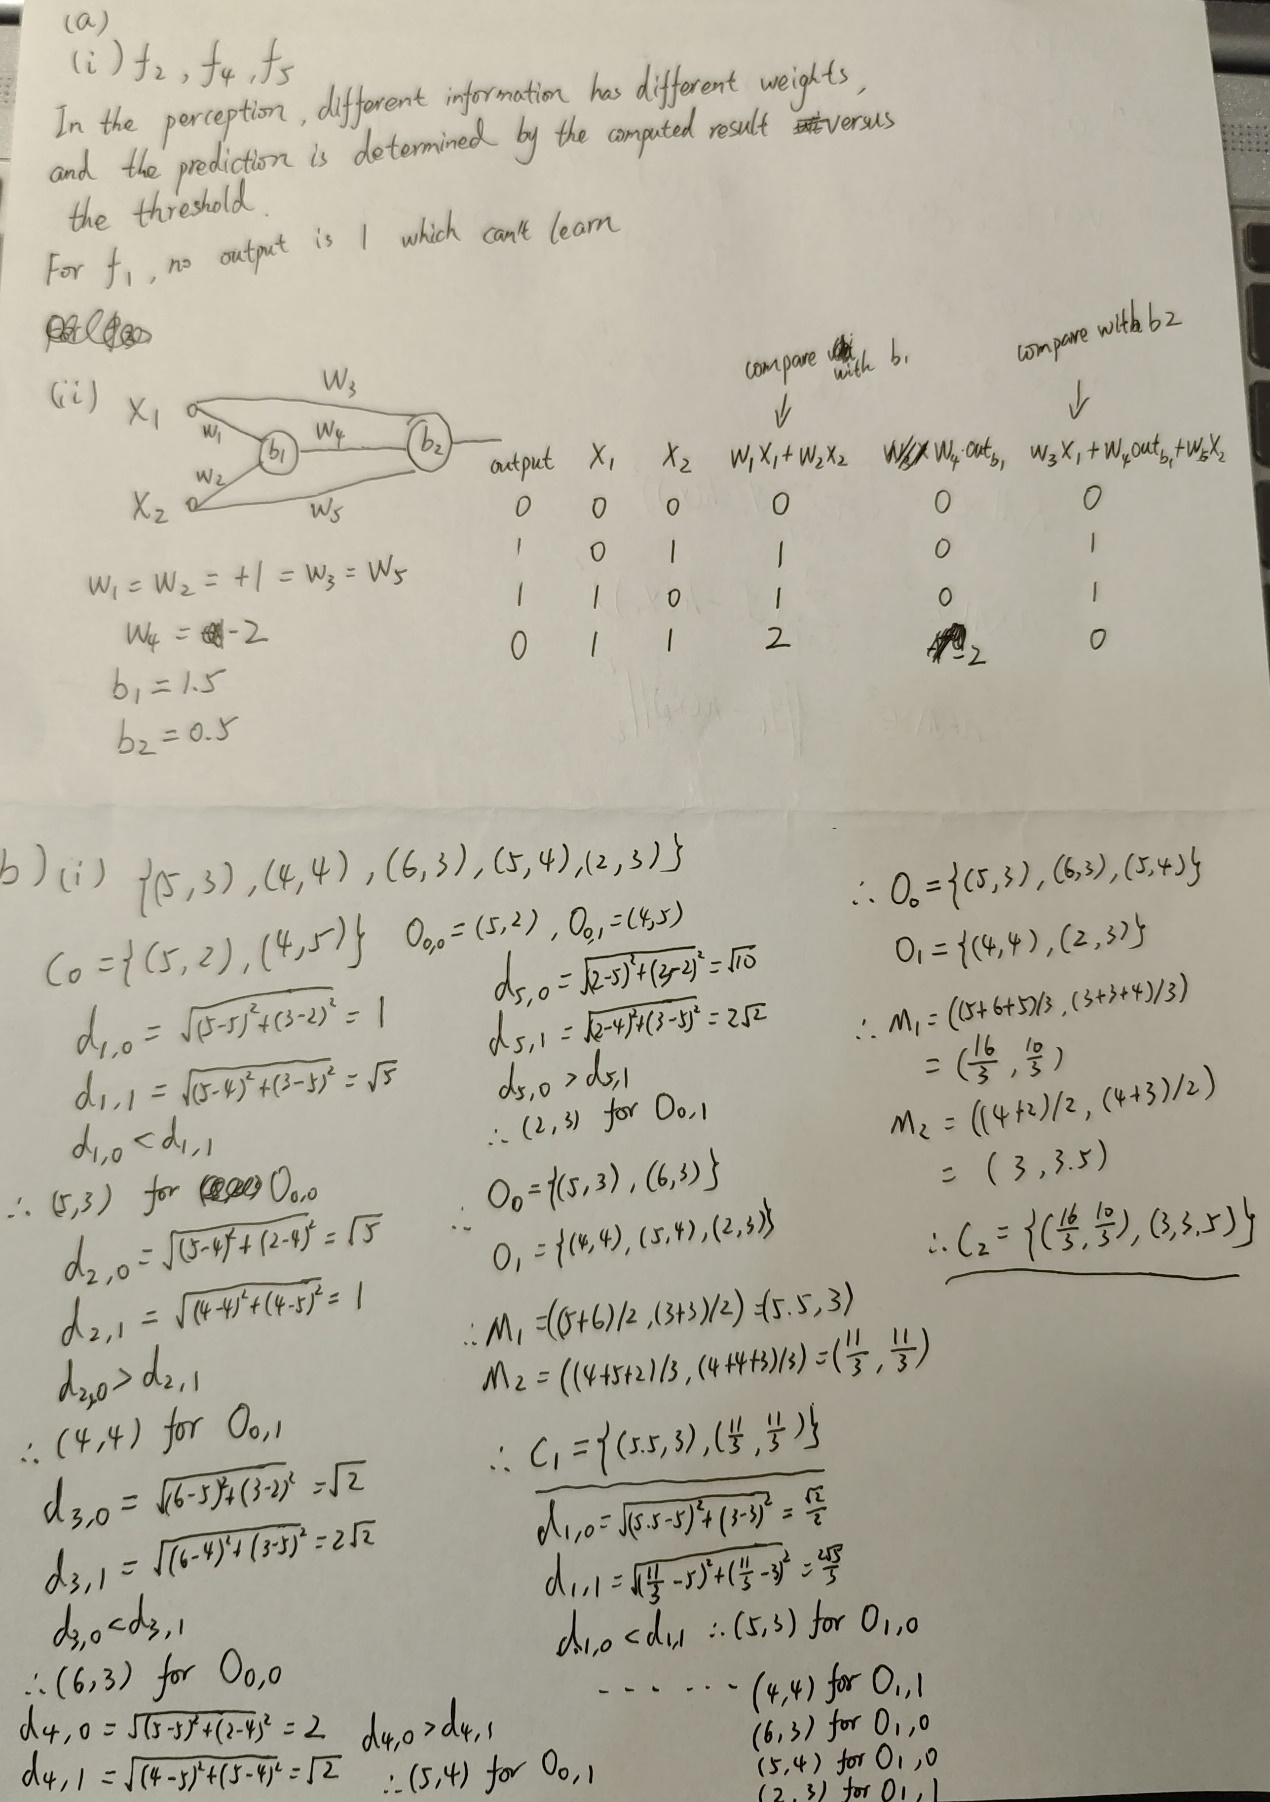 (a)
(i) f2, f4, f5
In the perception, different information has different weights,
and the prediction is determined by the computed result versus
the threshold.
For f1, no output is 1 which can't learn
(ii)
X1
X2
W1
W2
W3
W4
W5
b1
b2
W1 = W2 = +1 = W3 = W5
W4 = -2
b1 = 1.5
b2 = 0.5
compare with b1
compare with b2
output X1 X2 W1X1+W2X2 W4·outb1 W3X1+W4outb1+W5X2
0 0 0 0 0 0
1 0 1 1 0 1
1 1 0 1 0 1
0 1 1 2 -2 0
b) (i) {(5,3), (4,4), (6,3), (5,4), (2,3)}
C0 = {(5,2), (4,5)} O0,0 = (5,2), O0,1 = (4,5)
d1,0 = √(5-5)²+(3-2)² = 1
d1,1 = √(5-4)²+(3-5)² = √5
d1,0 < d1,1
∴ (5,3) for O0,0
d2,0 = √(5-4)²+(2-4)² = √5
d2,1 = √(4-4)²+(4-5)² = 1
d2,0 > d2,1
∴ (4,4) for O0,1
d3,0 = √(6-5)²+(3-2)² = √2
d3,1 = √(6-4)²+(3-5)² = 2√2
d3,0 < d3,1
∴ (6,3) for O0,0
d4,0 = √(5-5)²+(2-4)² = 2 d4,0 > d4,1
d4,1 = √(4-5)²+(5-4)² = √2 ∴ (5,4) for O0,1
d5,0 = √(2-5)²+(3-2)² = √10
d5,1 = √(2-4)²+(3-5)² = 2√2
d5,0 > d5,1
∴ (2,3) for O0,1
∴ O0 = {(5,3), (6,3)}
O1 = {(4,4), (5,4), (2,3)}
∴ M1 = ((5+6)/2, (3+3)/2) = (5.5, 3)
M2 = ((4+5+2)/3, (4+4+3)/3) = (11/3, 11/3)
∴ C1 = {(5.5,3), (11/3, 11/3)}
d1,0 = √(5.5-5)²+(3-3)² = √2/2
d1,1 = √(11/3-5)²+(11/3-3)² = 2√5/3
d1,0 < d1,1 ∴ (5,3) for O1,0
- - - - - - (4,4) for O1,1
(6,3) for O1,0
(5,4) for O1,0
(2,3) for O1,1
∴ O0 = {(5,3), (6,3), (5,4)}
O1 = {(4,4), (2,3)}
∴ M1 = ((5+6+5)/3, (3+3+4)/3)
= (16/3, 10/3)
M2 = ((4+2)/2, (4+3)/2)
= (3, 3.5)
∴ C2 = {(16/3, 10/3), (3,3.5)}